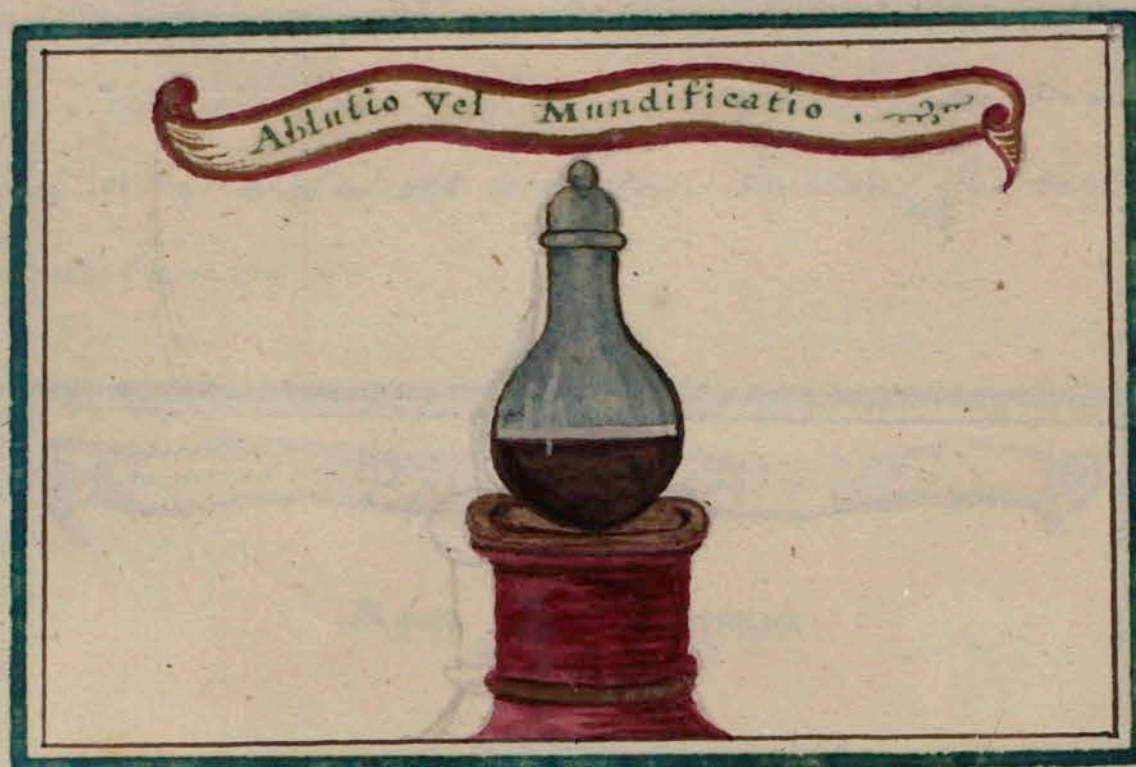 Ablutio Vel Mundificatio .